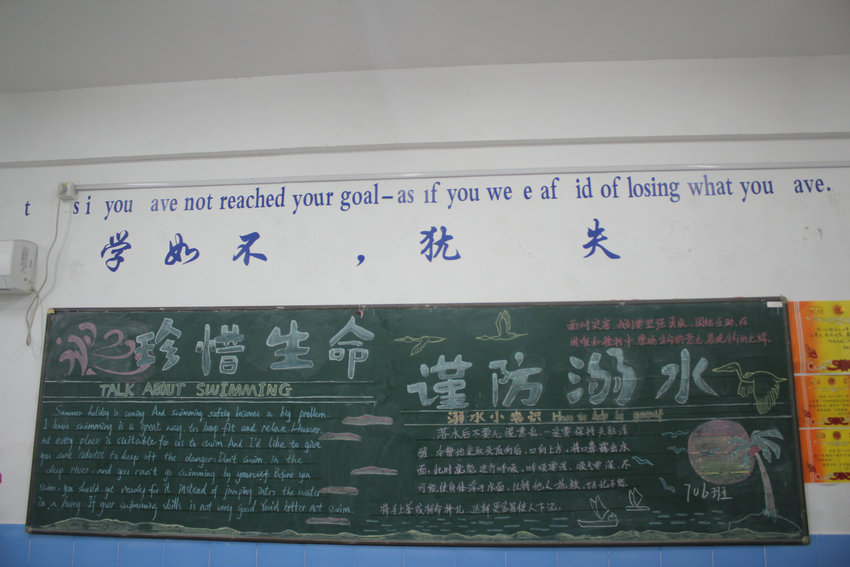 t si you ave not reached your goal – as if you we e af id of losing what you ave.
学如不 , 犹 失
珍惜生命
谨防溺水
TALK ABOUT SWIMMING
Summer holiday is coming. And swimming safety becomes a big problem.
I know swimming is a great way to keep fit and relax. However,
not every place is suitable for us to swim. And I'd like to give
you some advice to keep off the danger. Don't swim in the
deep river. and you can't go swimming by yourself. Before you
swim, you should get ready for it instead of jumping into the water
in a hurry. If your swimming skills is not very good. You'd better not swim
面对灾害,我们要坚强勇敢,团结互助,在
溺水小常识 How to help by yourself
落水后不要心慌意乱,一定要保持头脑清
醒,冷静地采取头顶向后,口向上方,将口鼻露出水
面,此时就能进行呼吸,呼吸要浅,吸气要深,尽
可能使身体浮于水面,以待他人抢救,切记不能
将手上举或拼命挣扎,这样更容易使人下沉。
706班